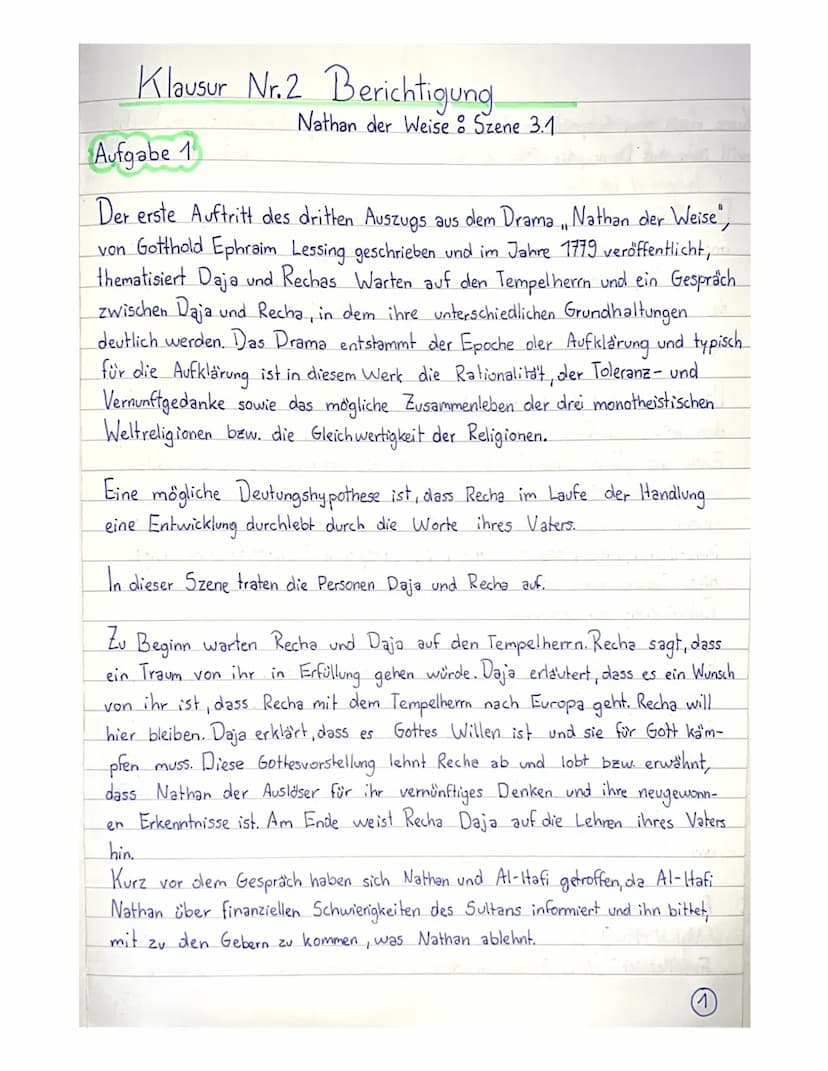 Klausur Nr.2 Berichtigung
Nathan der Weise : Szene 3.1
Aufgabe 1
Der erste Auftritt des dritten Auszugs aus dem Drama „Nathan der Weise",
von Gotthold Ephraim Lessing geschrieben und im Jahre 1779 veröffentlicht,
thematisiert Daja und Rechas Warten auf den Tempelherrn und ein Gespräch
zwischen Daja und Recha, in dem ihre unterschiedlichen Grundhaltungen
deutlich werden. Das Drama entstammt der Epoche der Aufklärung und typisch
für die Aufklärung ist in diesem Werk die Rationalität, der Toleranz- und
Vernunftgedanke sowie das mögliche Zusammenleben der drei monotheistischen
Weltreligionen bzw. die Gleichwertigkeit der Religionen.
Eine mögliche Deutungshypothese ist, dass Recha im Laufe der Handlung
eine Entwicklung durchlebt durch die Worte ihres Vaters.
In dieser Szene traten die Personen Daja und Recha auf.
Zu Beginn warten Recha und Daja auf den Tempelherrn. Recha sagt, dass
ein Traum von ihr in Erfüllung gehen würde. Daja erläutert, dass es ein Wunsch
von ihr ist, dass Recha mit dem Tempelherrn nach Europa geht. Recha will
hier bleiben. Daja erklärt, dass es Gottes Willen ist und sie für Gott käm-
pfen muss. Diese Gottesvorstellung lehnt Recha ab und lobt bzw. erwähnt,
dass Nathan der Auslöser für ihr vernünftiges Denken und ihre neugewonn-
en Erkenntnisse ist. Am Ende weist Recha Daja auf die Lehren ihres Vaters
hin.
Kurz vor dem Gespräch haben sich Nathan und Al-Hafi getroffen, da Al-Hafi
Nathan über finanziellen Schwierigkeiten des Sultans informiert und ihn bittet,
mit zu den Gebern zu kommen, was Nathan ablehnt.
1